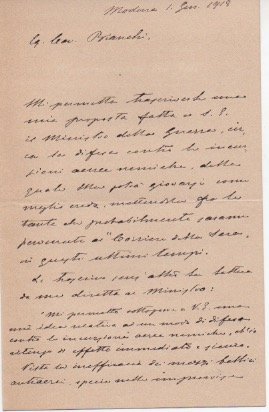 Modena 1. Gen. 1918
Eg. Cav. Bianchi.
Mi permetto trascriverle una
mia proposta fatta a S. E.
il Ministro della Guerra, cir,
ca la difesa contro le incur
sioni aeree nemiche, della
quale Ella potrà giovarsi come
meglio creda, mettendola fra le
tante che probabilmente saranno
pervenute al "Corriere della Sera"
in questi ultimi tempi.
Le trascrivo senz'altro la lettera
da me diretta al Ministro:
"Mi permetto sottoporre a V. E. una
una idea relativa ad un modo di difesa
contro le incursioni aeree nemiche, ch'io
ritengo di effetto immediato e sicuro.
Vista la inefficacia dei mezzi bellici
antiaerei, specie nelle